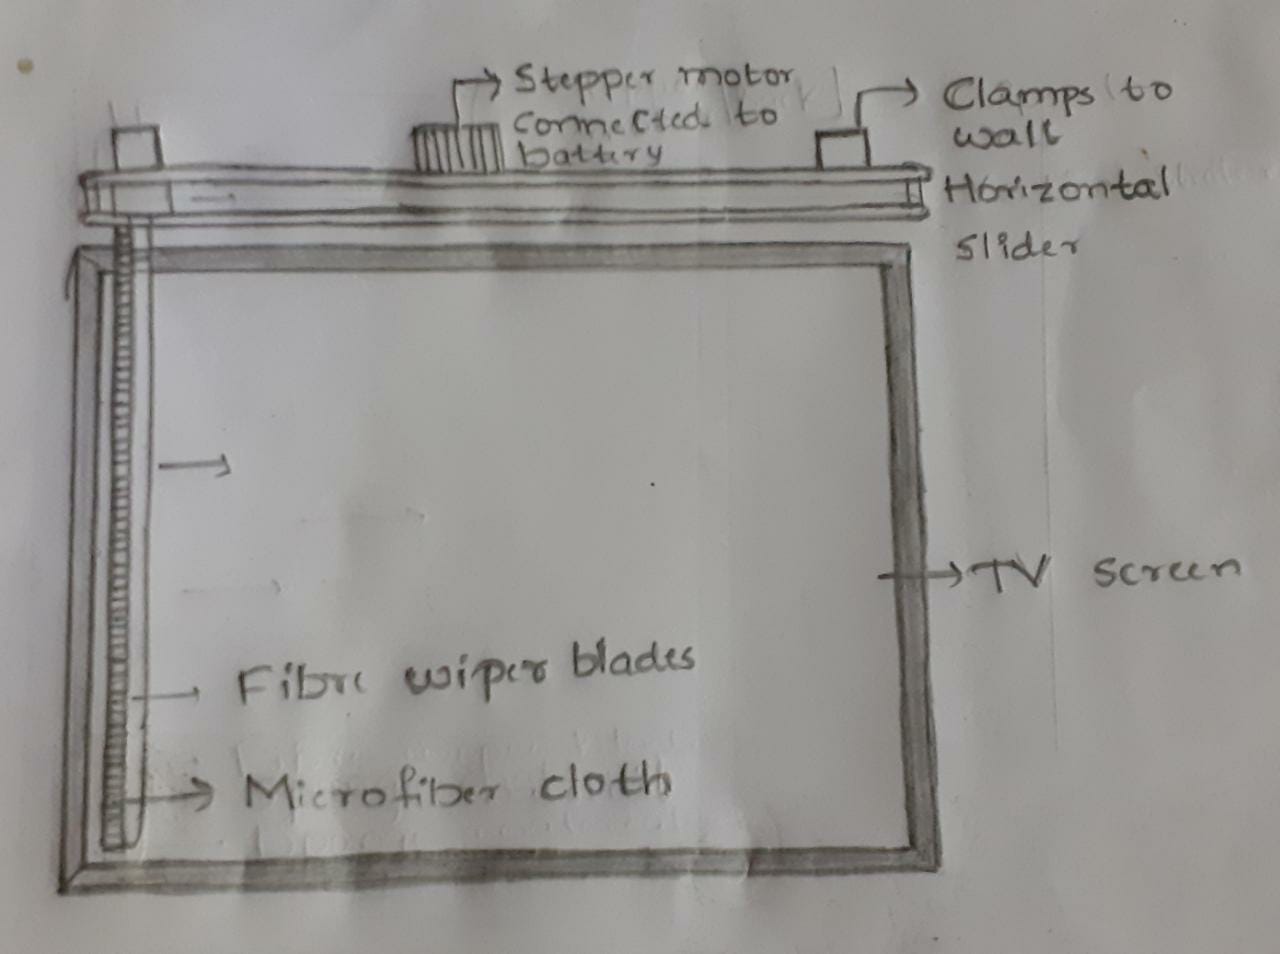 Stepper motor
connected to
battery
Clamps to
wall
Horizontal
slider
TV screen
Fibre wiper blades
Microfiber cloth